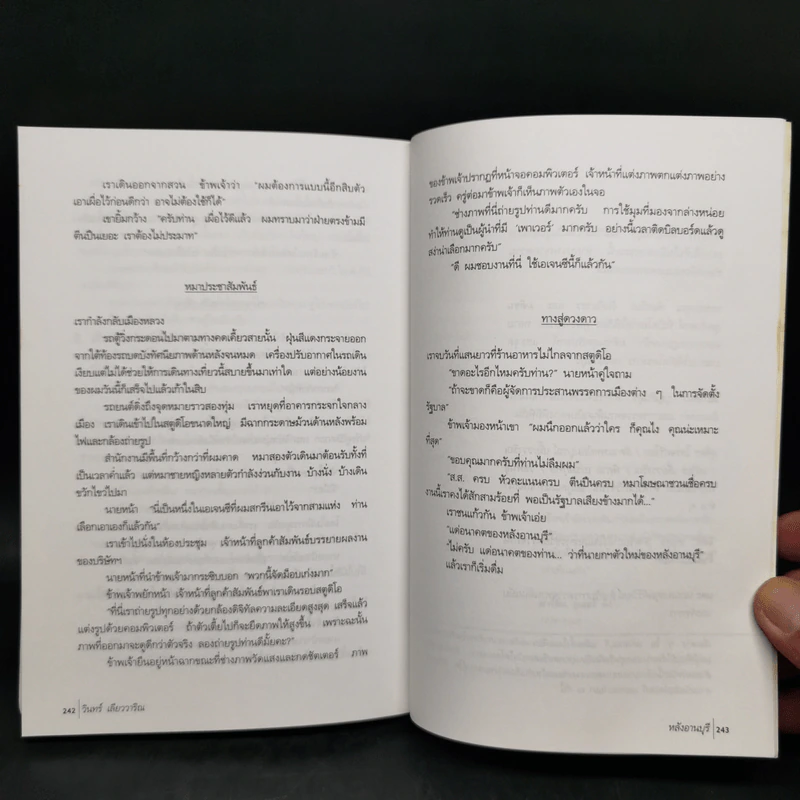 เราเดินออกจากสวน ข้าพเจ้าว่า "ผมต้องการแบบนี้อีกสิบตัว
เอาเผื่อไว้ก่อนดีกว่า อาจไม่ต้องใช้ก็ได้"
เขายิ้มกว้าง "ครับท่าน เผื่อไว้ดีแล้ว ผมทราบมาว่าฝ่ายตรงข้ามมี
ตีนปืนเยอะ เราต้องไม่ประมาท"
หมาประชาสัมพันธ์
เรากำลังกลับเมืองหลวง
รถตู้วิ่งกระดอนไปมาตามทางคดเคี้ยวสายนั้น ฝุ่นสีแดงกระจายออก
จากใต้ท้องรถบดบังทัศนียภาพด้านหลังจนหมด เครื่องปรับอากาศในรถเดิน
เงียบแต่ไม่ได้ช่วยให้การเดินทางเที่ยวนี้สบายขึ้นมาเท่าใด แต่อย่างน้อยงาน
ของผมวันนี้ก็เสร็จไปแล้วเก้าในสิบ
รถยนต์ดิ่งถึงจุดหมายราวสองทุ่ม เราหยุดที่อาคารกระจกใจกลาง
เมือง เราเดินเข้าไปในสตูดิโอขนาดใหญ่ มีฉากกระดาษม้วนด้านหลังพร้อม
ไฟและกล้องถ่ายรูป
สำนักงานมีพื้นที่กว้างกว่าที่ผมคาด หมาสองตัวเดินมาต้อนรับทั้งที่
เป็นเวลาค่ำแล้ว แต่หมาชายหญิงหลายตัวกำลังง่วนกับงาน บ้างนั่ง บ้างเดิน
ขวักไขว่ไปมา
นายหน้า "นี่เป็นหนึ่งในเอเจนซีที่ผมสกรีนเอาไว้จากสามแห่ง ท่าน
เลือกเอาเองก็แล้วกัน"
เราเข้าไปนั่งในห้องประชุม เจ้าหน้าที่ลูกค้าสัมพันธ์บรรยายผลงาน
ของบริษัทฯ
นายหน้าที่นำข้าพเจ้ามากระซิบบอก "พวกนี้จัดม็อบเก่งมาก"
ข้าพเจ้าพยักหน้า เจ้าหน้าที่ลูกค้าสัมพันธ์พาเราเดินรอบสตูดิโอ
"ที่นี่เราถ่ายรูปทุกอย่างด้วยกล้องดิจิทัลความละเอียดสูงสุด เสร็จแล้ว
แต่งรูปด้วยคอมพิวเตอร์ ถ้าตัวเตี้ยไปก็จะยืดภาพให้สูงขึ้น เพราะฉะนั้น
ภาพที่ออกมาจะดูดีกว่าตัวจริง ลองถ่ายรูปท่านดีมั้ยคะ?"
ข้าพเจ้ายืนอยู่หน้าฉากขณะที่ช่างภาพวัดแสงและกดชัตเตอร์ ภาพ
242 วินทร์ เลียววาริณ
ของข้าพเจ้าปรากฏที่หน้าจอคอมพิวเตอร์ เจ้าหน้าที่แต่งภาพตกแต่งภาพอย่าง
รวดเร็ว ครู่ต่อมาข้าพเจ้าก็เห็นภาพตัวเองในจอ
"ช่างภาพที่นี่ถ่ายรูปท่านดีมากครับ การใช้มุมที่มองจากล่างหน่อย
ทำให้ท่านดูเป็นผู้นำที่มี 'เพาเวอร์' มากครับ อย่างนี้เวลาติดบิลบอร์ดแล้วดู
สง่าน่าเลือกมากครับ"
"ดี ผมชอบงานที่นี่ ใช้เอเจนซีนี้ก็แล้วกัน"
ทางสู่ดวงดาว
เราจบวันที่แสนยาวที่ร้านอาหารไม่ไกลจากสตูดิโอ
"ขาดอะไรอีกไหมครับท่าน?" นายหน้าคู่ใจถาม
"ถ้าจะขาดก็คือผู้จัดการประสานพรรคการเมืองต่าง ๆ ในการจัดตั้ง
รัฐบาล"
ข้าพเจ้ามองหน้าเขา "ผมนึกออกแล้วว่าใคร ก็คุณไง คุณน่ะเหมาะ
ที่สุด"
"ขอบคุณมากครับที่ท่านไม่ลืมผม"
"ส.ส. ครบ หัวคะแนนครบ ตีนปืนครบ หมาโฆษณาชวนเชื่อครบ
งานนี้เราคงได้สักสามร้อยที่ พอเป็นรัฐบาลเสียงข้างมากได้..."
เราชนแก้วกัน ข้าพเจ้าเอ่ย
"แด่อนาคตของหลังอานบุรี"
"ไม่ครับ แด่อนาคตของท่าน... ว่าที่นายกฯตัวใหม่ของหลังอานบุรี"
แล้วเราก็เริ่มดื่ม
หลังอานบุรี 243